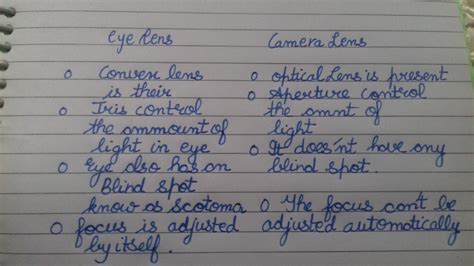 eye lens
Convex lens
is their
Iris control
the ammount of
light in eye
Eye also has an
Blind spot
know as scotoma
focus is adjusted
by itself.
Camera Lens
optical Lens is present
Aperture control
the amnt of
light
It does'nt have any
blind spot.
The focus can't be
adjusted automatically